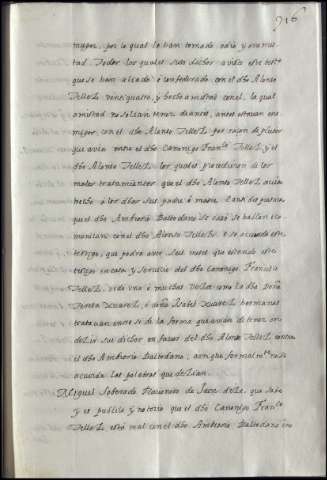 916
por lo qual le han tomado odio y enemis
tad. Todos los quales dichos
que se han aliado i confederado con el dho Alonso
Tellez veintiquatro, y hecho amistad con el, la qual
amistad no solian tener de antes, antes eran ene
migos con el dho Alonso Tellez por razon de pleitos
que avia entre el dho Canonigo Franco Tellez y el
dho Alonso Tellez, los quales procedieron de los
malos tratamientos que el dho Alonso Tellez avia
hecho a los dhos sus padre i madre
que el dho Ambrosio Baltodano se casó se hallan i co
munican con el dho Alonso Tellez. I se acuerda este
testigo, que podra aver seis meses que estando este
testigo en casa y servicio del dho Canonigo Francisco
Tellez, vido una i muchas vezes como la dha Doña
Teresa Xuarez, i doña Isabel Xuarez hermanas
tratavan entre si de la forma que avian de tener en
dezir sus dichos en favor del dho Alonso Tellez contra
el dho Ambrosio Baltodano, aunque formalmte no se
acuerda las palabras que dezian.
Miguel de Jaen dize, que sabe
y es publico y notorio que el dho Canonigo Franco
Tellez está mal con el dho Ambrosio Baltodano